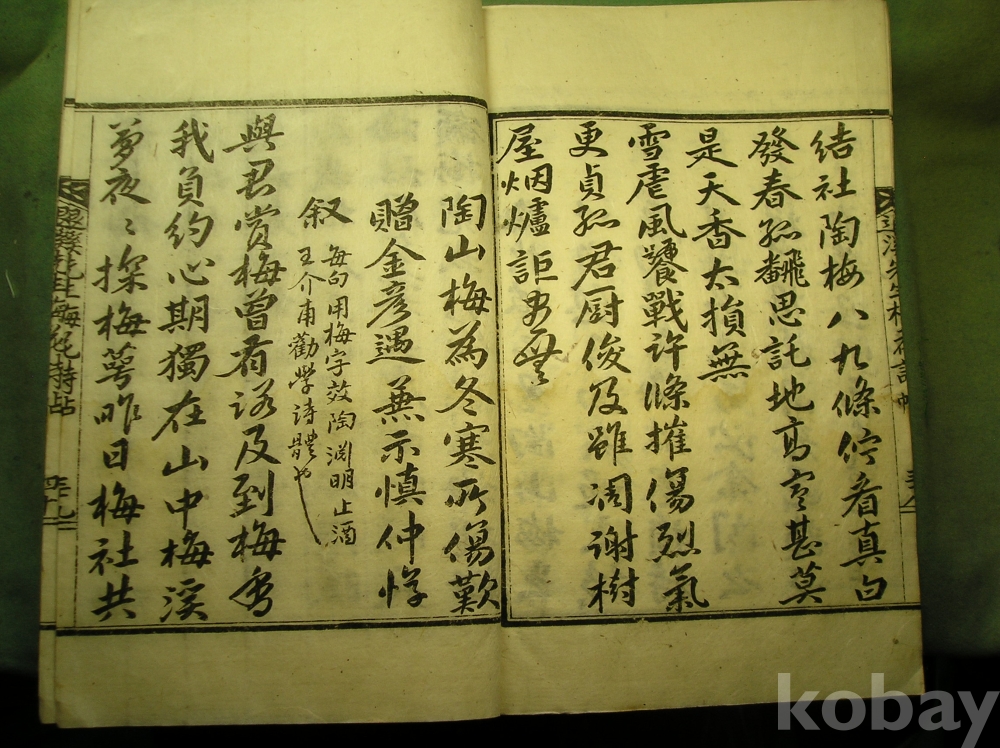 結社陶梅八九條佇看真白
發春孤飜思託地高寒甚莫
是天香太損無
雪虐風饕戰許條摧傷烈氣
更貞孤君厨俊及雖凋謝樹
屋烟爐詎無
陶山梅為冬寒所傷歎
贈金彥遇兼示慎仲惇
叙
每句用梅字效陶淵明止酒
王介甫勸學詩體也
與君賞梅曾有諾及到梅
我負約心期獨在山中梅溪
夢夜〻探梅萼昨日梅社共
退溪先生梅花詩帖
kobay